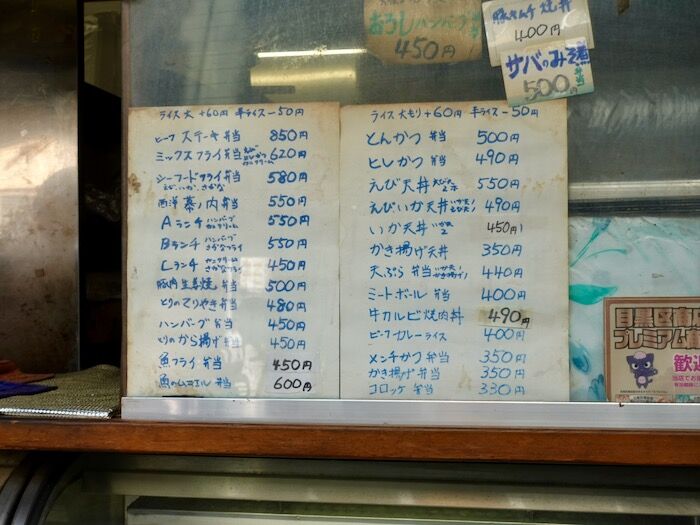 おろしハンバーグ弁当
450円
豚キムチ焼丼
400円
サバのみそ煮弁当
500円
ライス大 +60円 半ライス-50円
ビーフステーキ弁当 850円
ミックスフライ弁当 620円
シーフードフライ弁当 580円
えび、いか、さかな
西洋幕ノ内弁当 550円
Aランチ ハンバーグ カニクリーム 550円
Bランチ ハンバーグ さかなフライ 550円
Cランチ カニクリーム さかなフライ 450円
豚肉生姜焼弁当 500円
とりのてりやき弁当 480円
ハンバーグ弁当 450円
とりのから揚げ弁当 450円
魚フライ弁当 450円
魚のムニエル弁当 600円
ライス大もり+60円 半ライス-50円
とんかつ弁当 500円
ヒレかつ弁当 490円
えび天丼 550円
えびいか天丼 490円
いか天丼 450円
かき揚げ天丼 350円
天ぷら弁当 440円
ミートボール弁当 400円
牛カルビ焼肉丼 490円
ビーフカレーライス 400円
メンチかつ弁当 350円
かき揚げ弁当 350円
コロッケ弁当 330円
目黒区商
プレミアム
歓迎